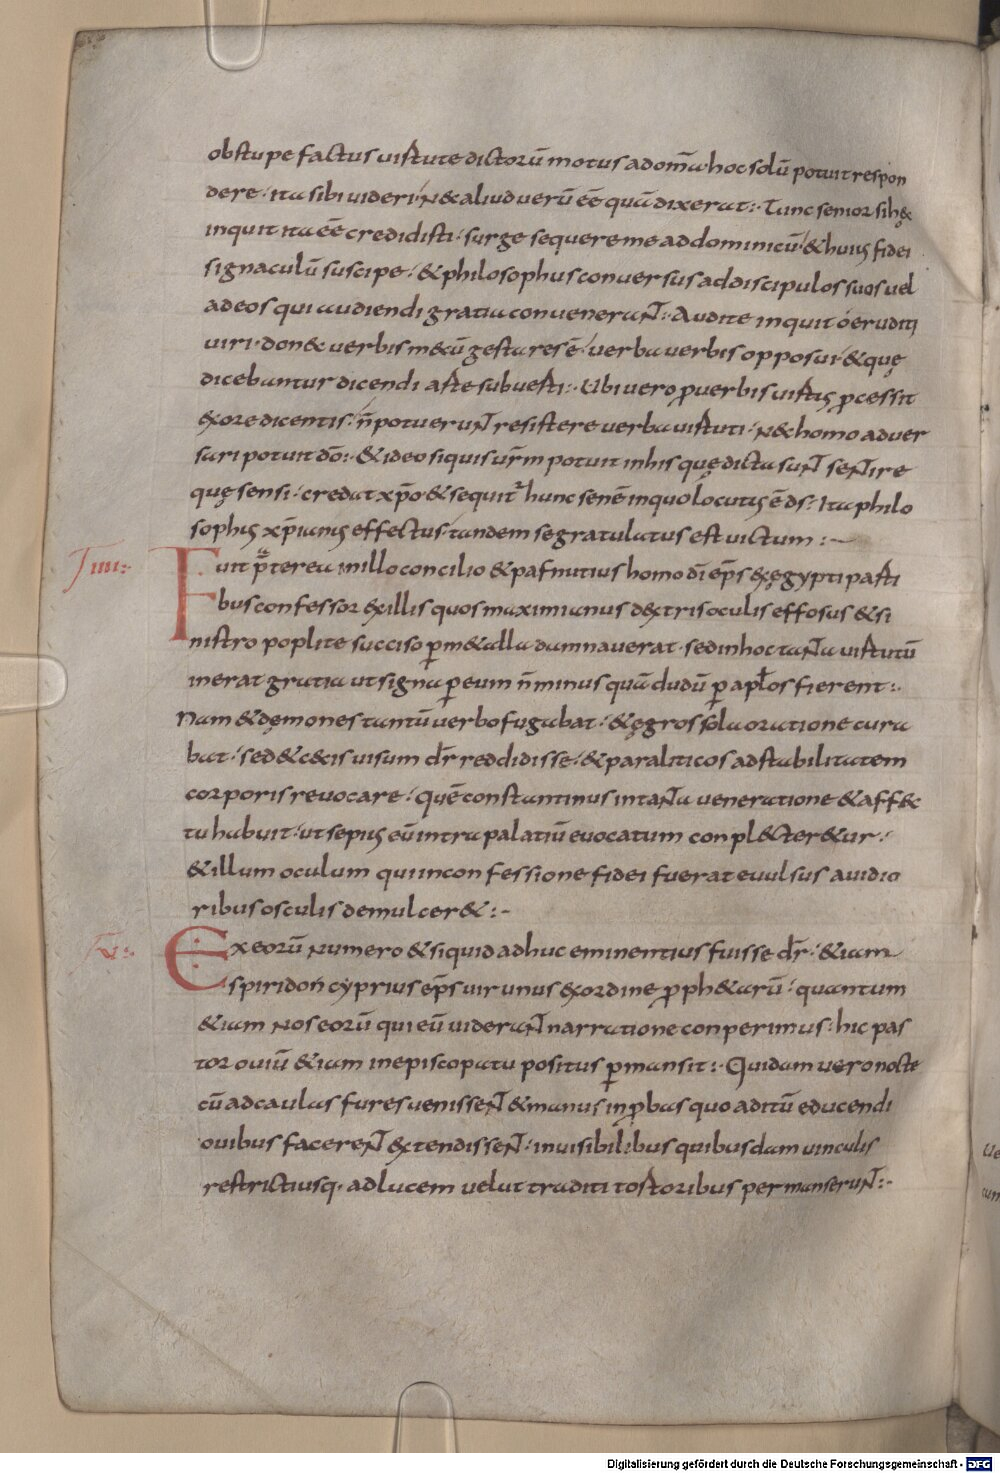 obstupefactus uirtute dictorū motus ad om̄a hoc solū potuit respon
dere· ita sibi uideri· n& aliud uerū eē quā dixerat:· Tunc senior si h&̨c
inquit ita eē credidisti· surge sequere me ad dominicū· & huiꝰ fidei
signaculū suscipe· & philosophus conuersus ad discipulos suos uel
ad eos qui audiendi gratia conuenerant:· Audite inquit o eruditi
uiri· donec uerbis mecū gesta res ē· uerba uerbis opposui· & quę
dicebantur dicendi arte subuerti:· Ubi uero ꝓ uerbis uirtꝰ ꝓcessit
& ore dicentis· n̄ potuerunt resistere uerba uirtuti· n& homo aduer
sari potuit dō:· & ideo siquis ur̄m potuit in his quę dicta sunt sentire
quę sensi· credat xp̄o & sequit᷑ hunc senē in quo locutꝰ ē ds̄:· Ita philo
sophꝰ xp̄ianꝰ effectus· tandem se gratulatus est uictum:·
.iiii:·
Fuit p̄terea in illo concilio & pafnutius homo dī ep̄s ex ęgypti parti
bus confessor ex illis quos maximianus dextris oculis effosus & si
nistro poplite succiso ꝑ m&alla damnauerat· sed in hoc tanta uirtutū
inerat gratia ut signa ꝑ eum n̄ minus quā dudū ꝑ apl̄os fierent:·
Nam & dęmones tantū uerbo fugabat· & ęgros sola oratione cura
bat· sed & cecis uisum dr̄ reddidisse· & paraliticos ad stabilitatem
corporis reuocare· Quē constantinus in tanta ueneratione & affec
tu habuit· ut sepiꝰ eū intra palatiū euocatum conplecteretur·
& illum oculum qui in confessione fidei fuerat euulsus auidio
ribus osculis demulcer&:·
.v:·
Ex eorū numero & siquid adhuc eminentius fuisse dr̄· &iam
spiridon cyprius ep̄s uir unus ex ordine ꝓph&arū· quantum
&iam nos eorū qui eū uiderant narratione conperimus· hic pas
tor ouiū &iam in episcopatu positus ꝑmansit:· Quidam uero nocte
cū ad caulas fures uenissent & manus inꝓbas quo aditū educendi
ouibus facerent extendissent· inuisibilibus quibusdam uinculis
restricti usq· ad lucem uelut traditi tortoribus permanserunt:·
Digitalisierung gefördert durch die Deutsche Forschungsgemeinschaft - DFG